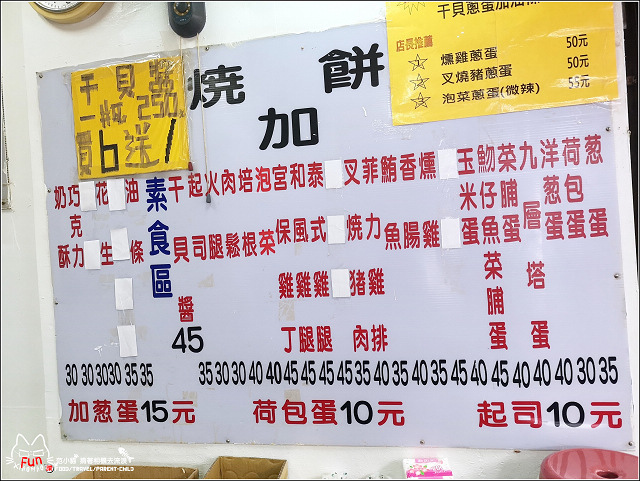 干貝蔥蛋加油條
店長推薦
燻雞蔥蛋 50元
叉燒豬蔥蛋 50元
泡菜蔥蛋(微辣) 55元
干貝醬
一瓶250元
買6送1
燒餅
加
蔥蛋
荷包蛋
洋蔥蛋
九層塔蛋
菜脯蛋
魩仔魚菜脯蛋
玉米蛋
燻雞
香腸
鮪魚
菲力雞排
叉燒豬肉
泰式雞腿
和風雞腿
宮保雞丁
泡菜
培根
肉鬆
火腿
起司
干貝醬45
素食區
油條
花生
巧克力
奶酥
30 30 30 30 35 35 35 30 30 40 40 45 45 45 45 35 40 35 40 35 45 40 45 40 40 40 30 35
加蔥蛋15元 荷包蛋10元 起司10元
Fun
FOOD/TRAVEL/PARENT-CHILD